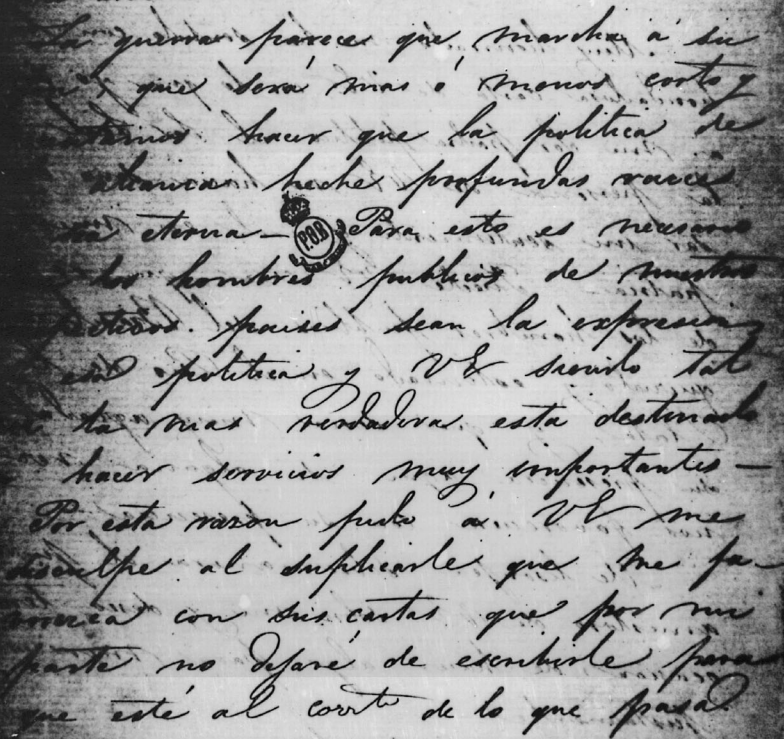 La guerra parece que marcha á su
que será mas ó menos corto y
hacer que la politica de
alianza heche profundas raices
eterna — Para esto es necesario
P.O.R
los hombres publicos de nuestros
paises sean la expresion
esa politica y VE siendo tal
la mas verdadera esta destinado
hacer servicios muy importantes —
Por esta razon pido á VE me
disculpe al suplicarle que me fa-
vorezca con sus cartas que por mi
parte no dejaré de escribirle para
que esté al corrte de lo que pasa